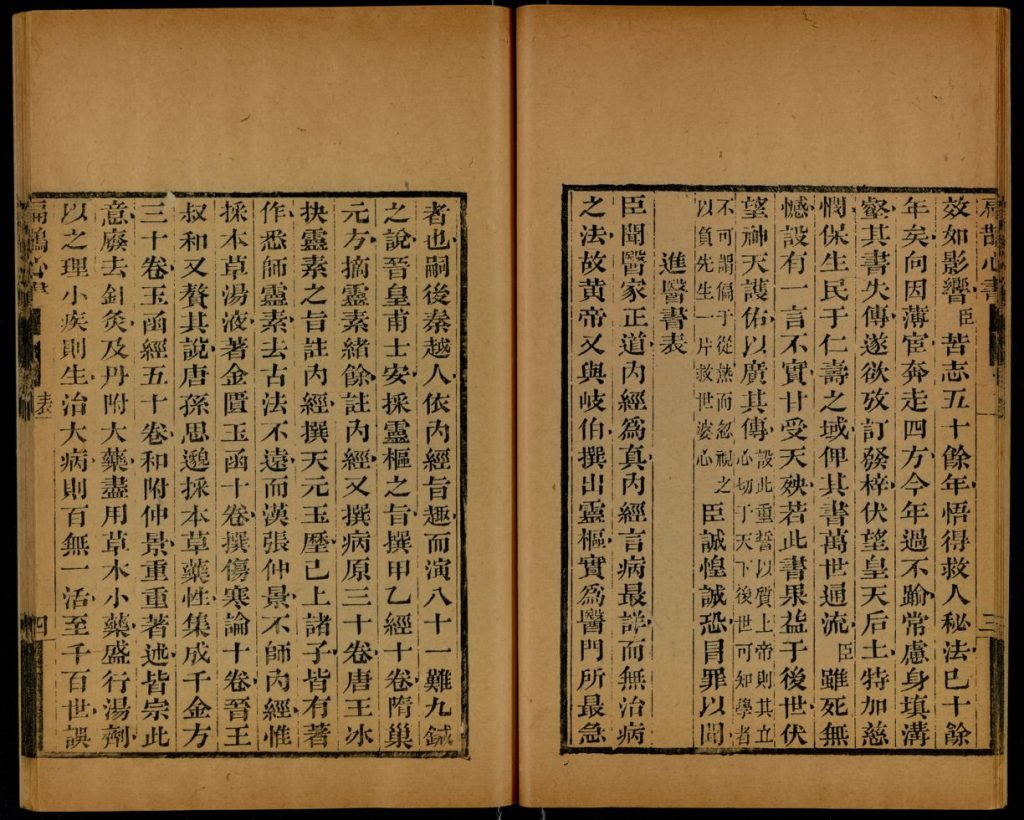 扁鵲心書
三
效如影響臣苦志五十餘年悟得救人秘法已十餘
年矣向因薄宦奔走四方今年過不踰常慮身填溝
壑其書失傳遂欲攷訂發梓伏望皇天后土特加慈
憫保生民于仁壽之域俾其書萬世通流臣雖死無
憾設有一言不實甘受天殃若此書果益于後世伏
望神天護佑以廣其傳設此重誓以質上帝則其立
心切于天下後世可知學者
不可謂偏于從熱而忽視之
以負先生一片救世婆心臣誠惶誠恐冒罪以聞
進醫書表
臣聞醫家正道內經爲真內經言病最詳而無治病
之法故黃帝又與岐伯撰出靈樞實爲醫門所最急
者也嗣後秦越人依內經旨趣而演八十一難九鍼
之說晉皇甫士安採靈樞之旨撰甲乙經十卷隋巢
元方摘靈素緒餘註內經又撰病原三十卷唐王冰
抉靈素之旨註內經撰天元玉歷已上諸子皆有著
作悉師靈素去古法不遠而漢張仲景不師內經惟
採本草湯液著金匱玉函十卷撰傷寒論十卷晉王
叔和又贅其說唐孫思邈採本草藥性集成千金方
三十卷玉函經五十卷和附仲景重重著述皆宗此
意廢去針灸及丹附大藥盡用草木小藥盛行湯劑
以之理小疾則生治大病則百無一活至千百世誤
扁鵲心書
表
四